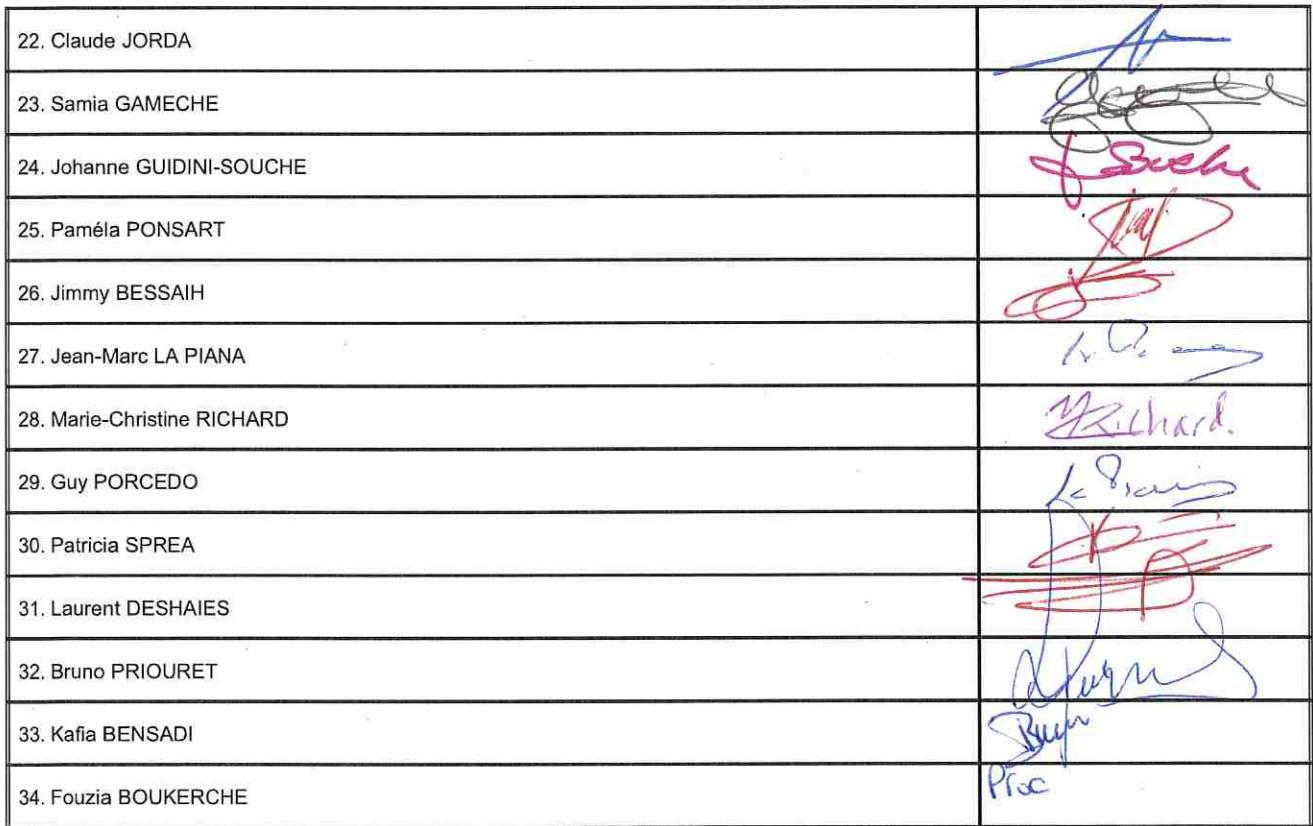 22. Claude JORDA
23. Samia GAMECHE
24. Johanne GUIDINI-SOUCHE
Souche
25. Paméla PONSART
26. Jimmy BESSAIH
27. Jean-Marc LA PIANA
28. Marie-Christine RICHARD
MRichard.
29. Guy PORCEDO
30. Patricia SPREA
31. Laurent DESHAIES
32. Bruno PRIOURET
33. Kafia BENSADI
34. Fouzia BOUKERCHE
Proc